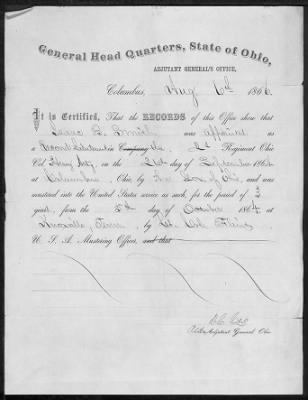 General Head Quarters, State of Ohio,
ADJUTANT GENERAL'S OFFICE,
Columbus, Aug. 6th 1866
It is Certified, That the RECORDS of this Office show that
Isaac B. Smith was appointed
as Second Lieutenant in Company the 2d Regiment Ohio
Vol. Heavy Arty. on the 21st day of September 1864
at Columbus, Ohio, by Gov. of Ohio, and was
mustered into the United States service as such, for the period of 3
years, from the 5th day of October 1864 at
Knoxville, Tenn, by Lt.
U. S. A. Mustering Officer, and that
Adjutant General Ohio.